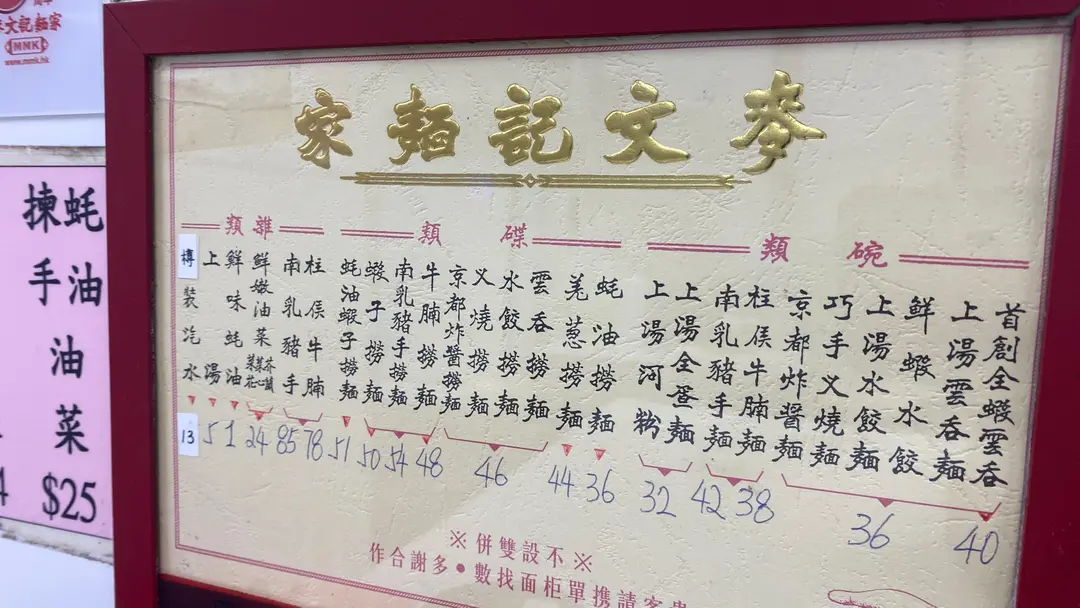 文記麵家
MMK
www.mmk.hk
蚝油
揀手油菜
$25
麥文記麵家
碗類
首創全蝦雲吞
上湯雲吞麵
鮮蝦水餃
上湯水餃麵
巧手叉燒麵
京都炸醬麵
柱侯牛腩麵
南乳豬手麵
上湯全蛋麵
上湯河粉
40
36
38
42
32
碟類
蚝油撈麵
羌蔥撈麵
雲吞撈麵
水餃撈麵
叉燒撈麵
京都炸醬撈麵
牛腩撈麵
南乳豬手撈麵
蝦子撈麵
蚝油蝦子撈麵
36
44
46
48
54
50
51
雜類
柱侯牛腩
南乳豬手
鮮嫩油菜
芥蘭
菜心
鮮味蚝油
上湯
樽裝汽水
78
85
24
1
5
13
※不設雙併※
貴客請携單櫃面找數•多謝合作